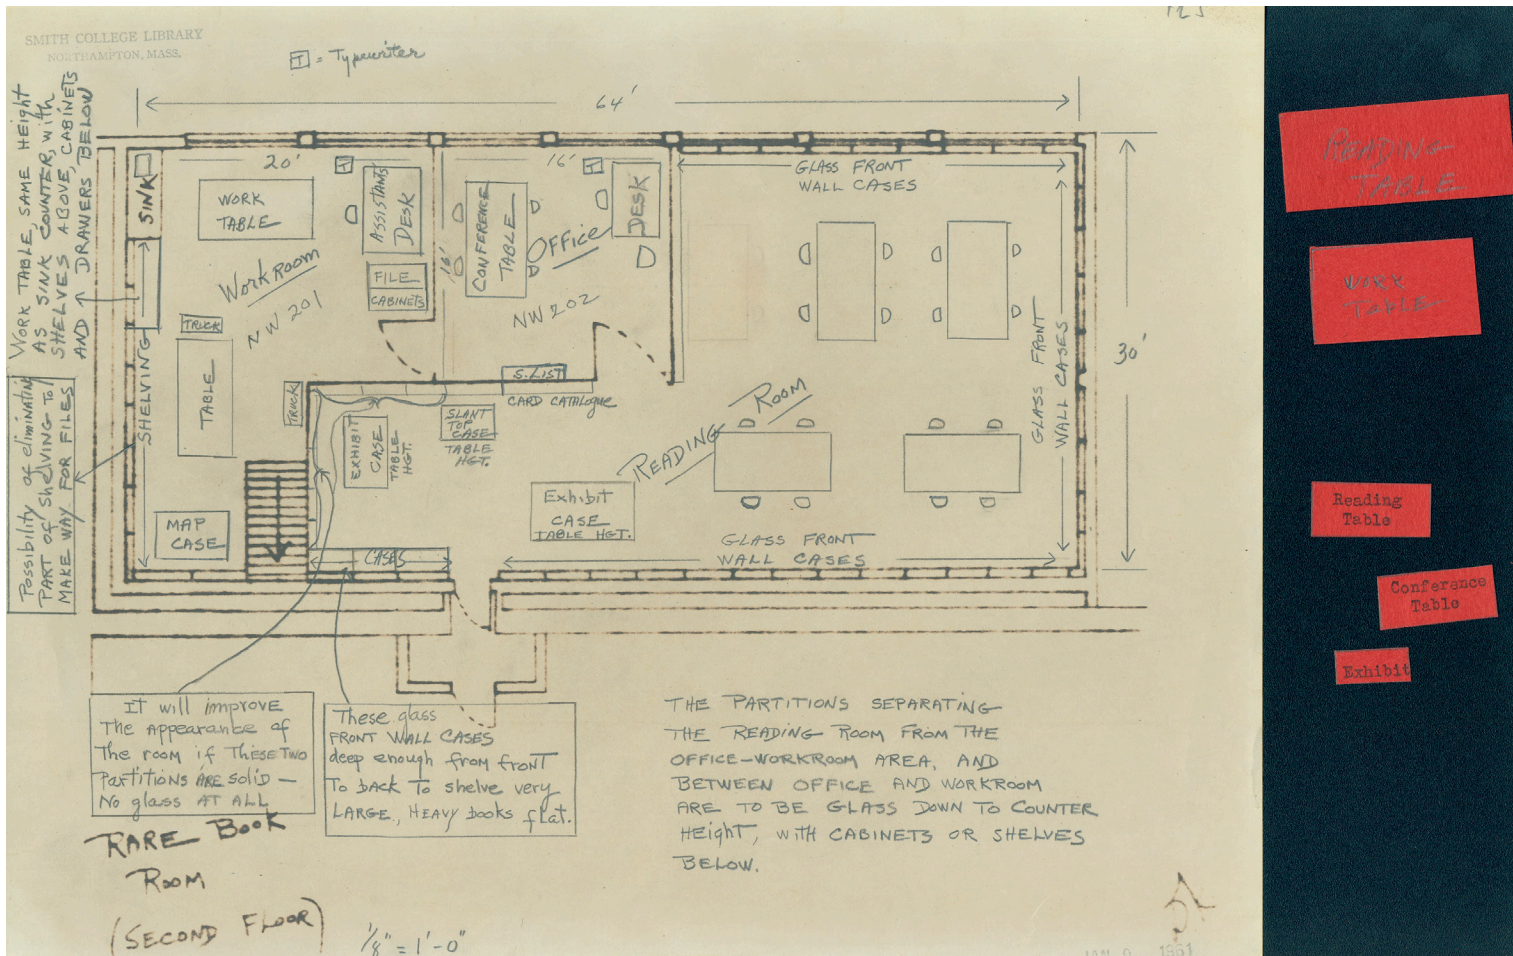 SMITH COLLEGE LIBRARY
NORTHAMPTON, MASS.
T = Typewriter
125
64'
WORK TABLE, SAME HEIGHT
AS SINK COUNTER, with
SHELVES ABOVE, CABINETS
AND DRAWERS BELOW
Possibility of eliminating
PART OF Shelving To
MAKE WAY FOR FILES
SINK
SHELVING
20'
T
WORK
TABLE
ASSISTANTS
DESK
FILE
CABINETS
WorkRoom
NW 201
TRUCK
TABLE
TRUCK
MAP
CASE
16'
T
16'
CONFERENCE
TABLE
DESK
OFFice
NW202
S. LIST
CARD CATALOGUE
SLANT
TOP
CASE
TABLE
HGT.
EXHIBIT
CASE
TABLE
HGT.
CASES
GLASS FRONT
WALL CASES
GLASS FRONT
WALL CASES
30'
READING Room
Exhibit
CASE
TABLE HGT.
GLASS FRONT
WALL CASES
It will improve
The Appearance of
The room if THESE TWO
Partitions ARE solid —
No glass AT ALL
These glass
FRONT WALL CASES
deep enough from fronT
To back To shelve very
LARGE, HEAVY books flat.
THE PARTITIONS SEPARATING
THE READING ROOM FROM THE
OFFICE-WORKROOM AREA, AND
BETWEEN OFFICE AND WORKROOM
ARE TO BE GLASS DOWN TO COUNTER
HEighT, with CABINETS OR SHELVES
BELOW.
RARE Book
Room
(SECOND FLOOR)
1/8" = 1'-0"
1961
READING
TABLE
WORK
TABLE
Reading
Table
Conference
Table
Exhibit